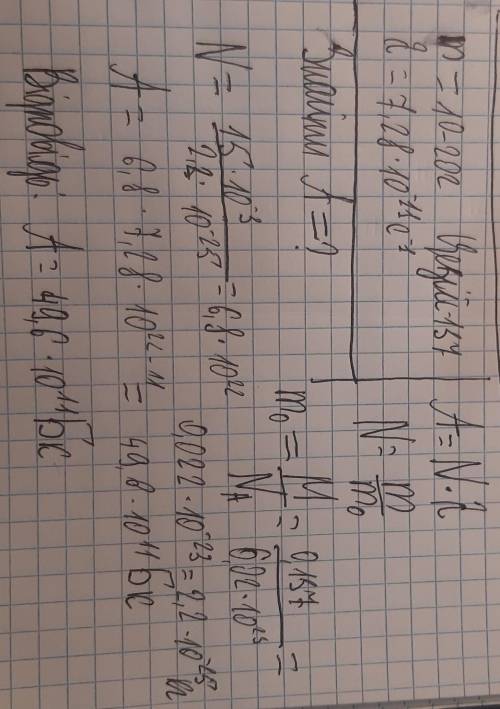 m = 10-20г Цезій-137
λ = 7,28 · 10⁻¹¹ с⁻¹
Знайти A = ?
A = N · λ
N = m/m₀
m₀ = M/N_A = 0,137/6,02 · 10²³ =
0,022 · 10⁻²³ = 2,2 · 10⁻²⁵ кг
N = 15 · 10⁻³/2,2 · 10⁻²⁵ = 6,8 · 10²²
A = 6,8 · 7,28 · 10²²⁻¹¹ = 49,8 · 10¹¹ Бк
Відповідь: A = 49,6 · 10¹¹ Бк